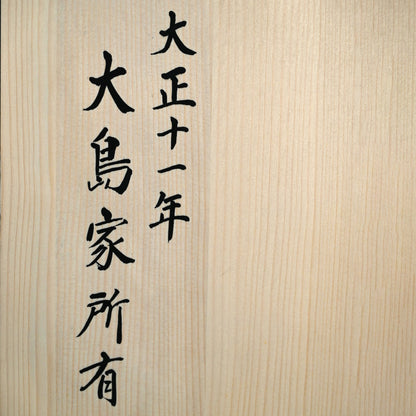 大正十一年
大島家所有